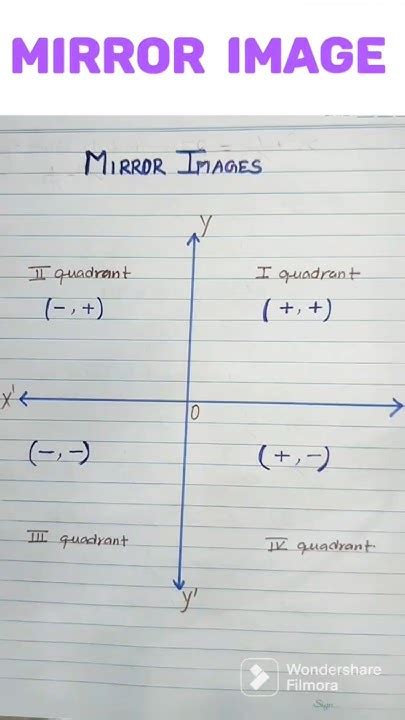 MIRROR IMAGE
MIRROR IMAGES
Y
II quadrant
I quadrant
(-,+)
(+,+)
X'
O
(-,-)
(+,-)
III quadrant
IV quadrant
Y'
Wondershare
Filmora